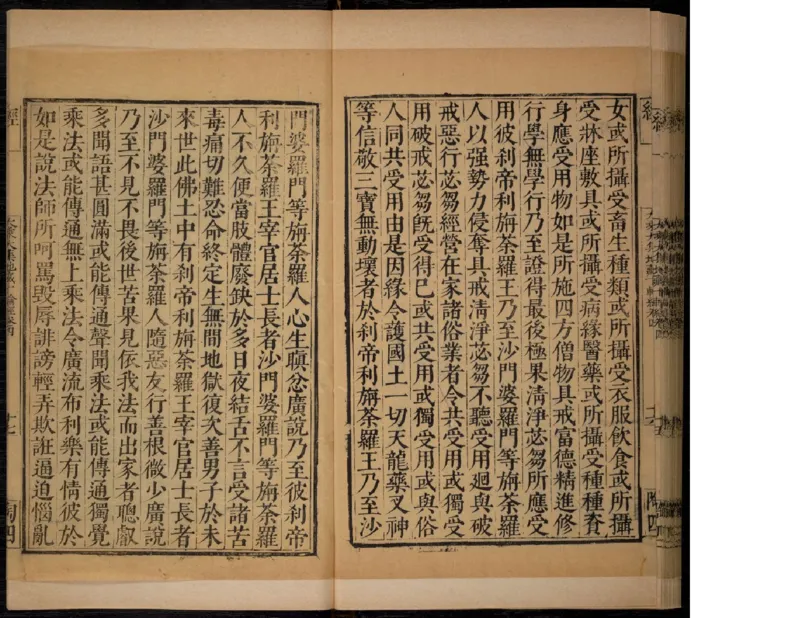 女或所攝受畜生種類或所攝受衣服飲食或所攝
受牀座敷具或所攝受病緣醫藥或所攝受種種資
身應受用物如是所施四方僧物具戒富德精進修
行學無學行乃至證得最後極果淸淨苾芻所應受
用彼剎帝利旃茶羅王乃至沙門婆羅門等旃茶羅
人以强勢力侵奪具戒淸淨苾芻不聽受用廻與破
戒惡行苾芻經營在家諸俗業者令共受用或獨受
用破戒苾芻旣受得已或共受用或獨受用或與俗
人同共受用由是因緣令護國土一切天龍藥叉神
等信敬三寶無動壞者於剎帝利旃茶羅王乃至沙
門婆羅門等旃茶羅人心生瞋忿廣說乃至彼剎帝
利旃茶羅王宰官居士長者沙門婆羅門等旃茶羅
人不久便當肢體廢缺於多日夜結舌不言受諸苦
毒痛切難忍命終定生無間地獄復次善男子於未
來世此佛土中有剎帝利旃茶羅王宰官居士長者
沙門婆羅門等旃茶羅人隨惡友行善根微少廣說
乃至不見不畏後世苦果見依我法而出家者聰叡
多聞語甚圓滿或能傳通聲聞乘法或能傳通獨覺
乘法或能傳通無上乘法令廣流布利樂有情彼於
如是說法師所呵罵毀辱誹謗輕弄欺誑逼迫惱亂